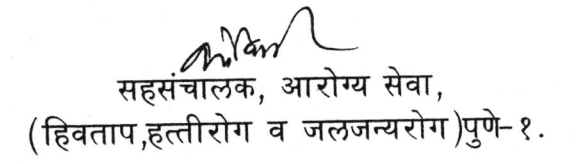 सहसंचालक, आरोग्य सेवा,
(हिवताप,हत्तीरोग व जलजन्यरोग)पुणे-१.